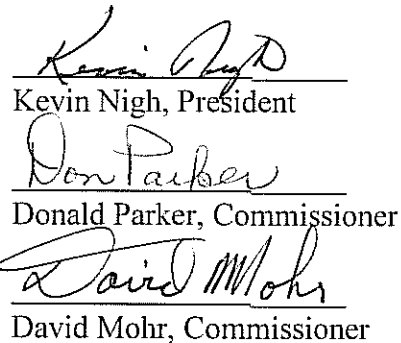 Kevin Nigh
Kevin Nigh, President
Don Parker
Donald Parker, Commissioner
David Mohr
David Mohr, Commissioner